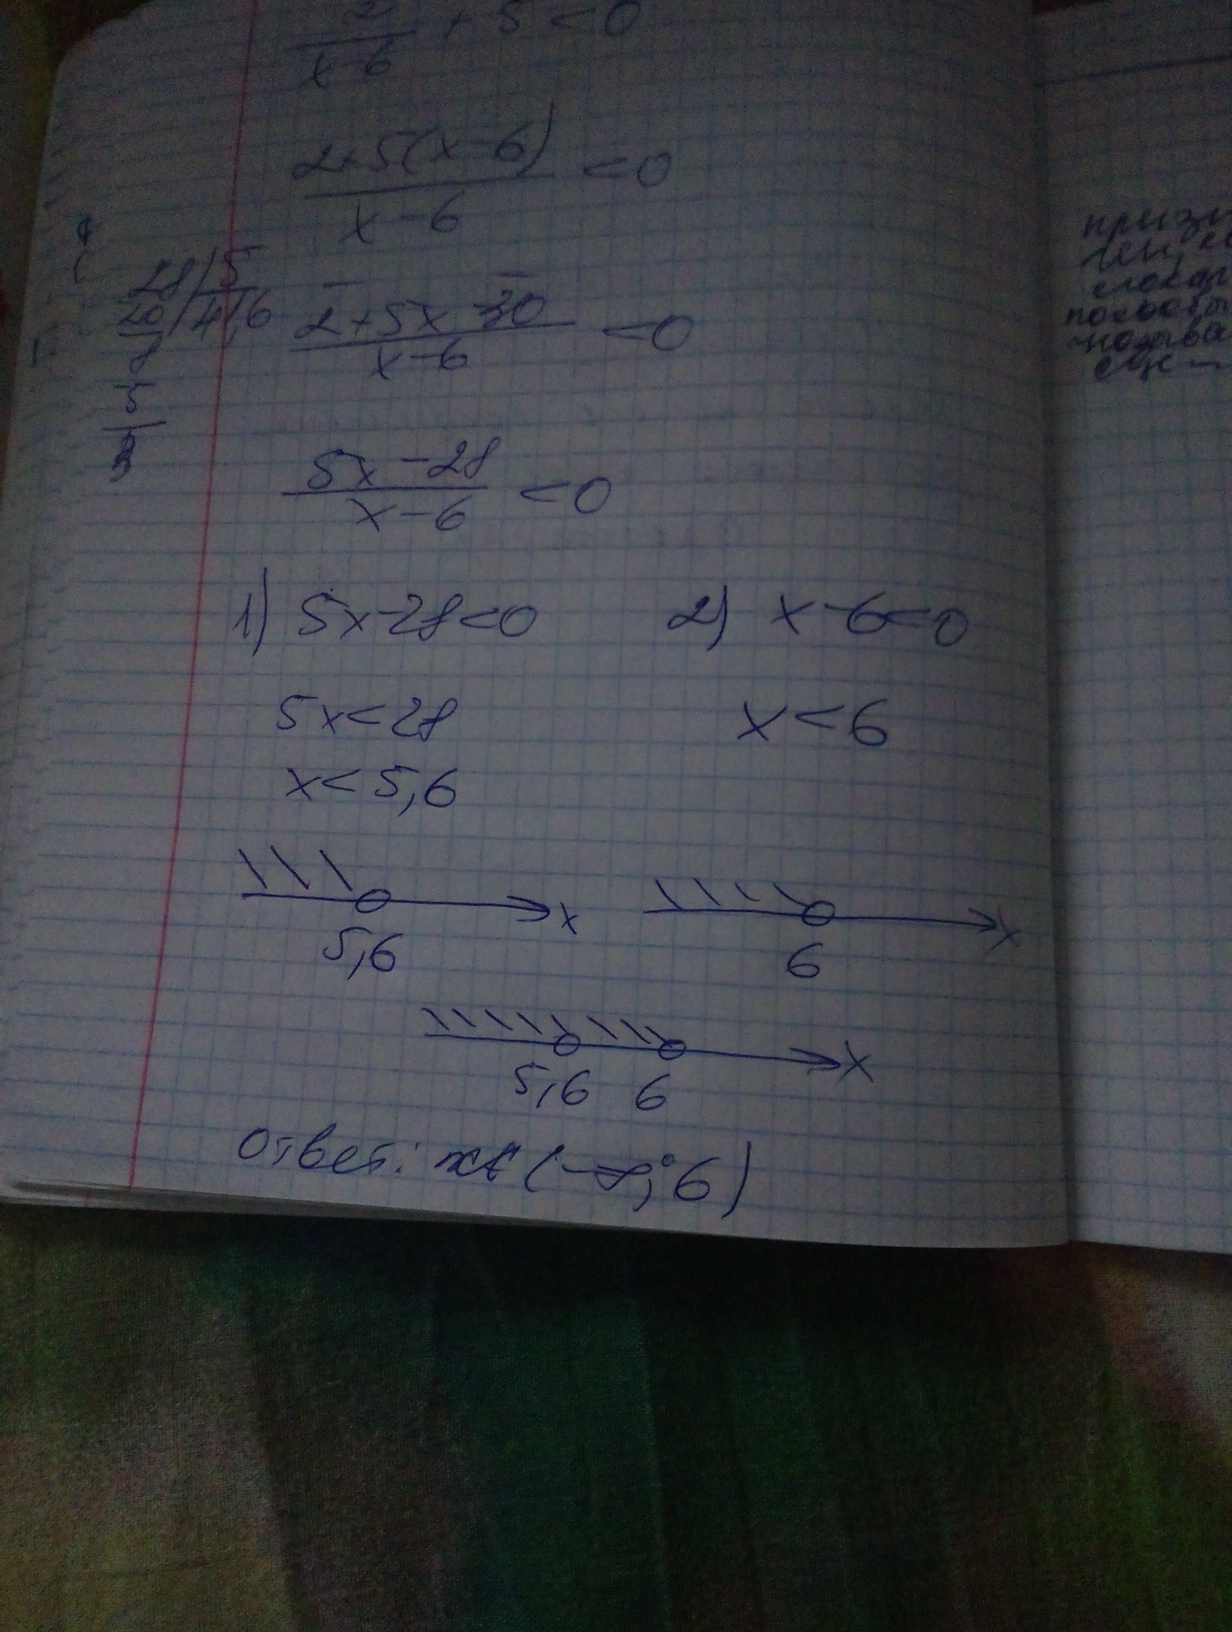 2/(x-6) + 5 < 0
(2+5(x-6))/(x-6) < 0
28 | 5
20 | 4,6
8
5
3
(2+5x-30)/(x-6) < 0
(5x-28)/(x-6) < 0
1) 5x-28<0
2) x-6<0
5x<28
x<6
x<5,6
5,6 x
6 x
5,6 6 x
Ответ: x∈(-∞; 6)